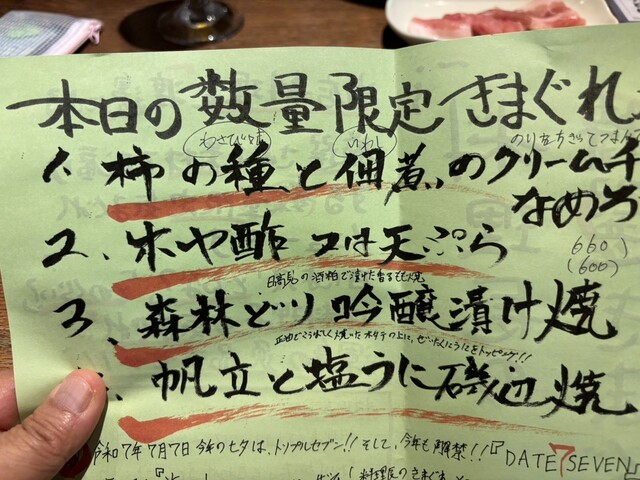 本日の数量限定きまぐれ
わさび味 いわし のりをちぎってつまん
1. 柿の種と佃煮のクリームチ
なめろ
660)
(600)
2、ホヤ酢 又は天ぷら
日高見の酒粕で漬けた香るもも焼
3、森林どり吟醸漬け焼
正油でこうばしく焼いたホタテの上に、ぜいたくにうにをトッピング!!
帆立と塩うに磯辺焼
令和7年7月7日 今年の七夕は、トリプルセブン!! そして、今年も解禁!!『DATE 7 SEVEN』